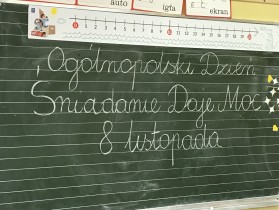 auto
igła
ekran
Ogólnopolski Dzień
Śniadanie Daje Moc
8 listopada